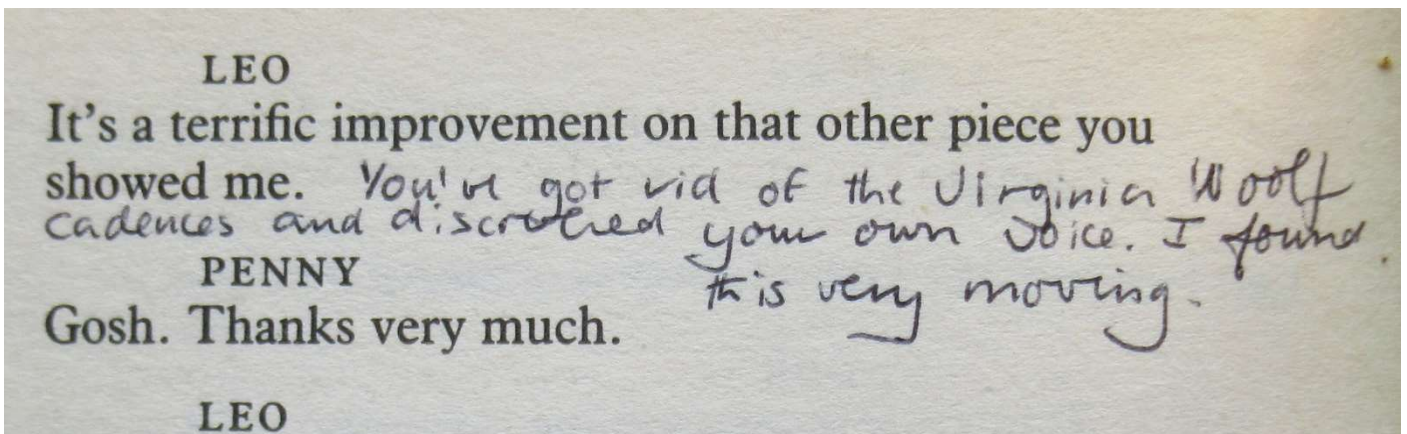 LEO
It's a terrific improvement on that other piece you
showed me. You've got rid of the Virginia Woolf
cadences and discovered your own voice. I found
PENNY this is very moving.
Gosh. Thanks very much.
LEO